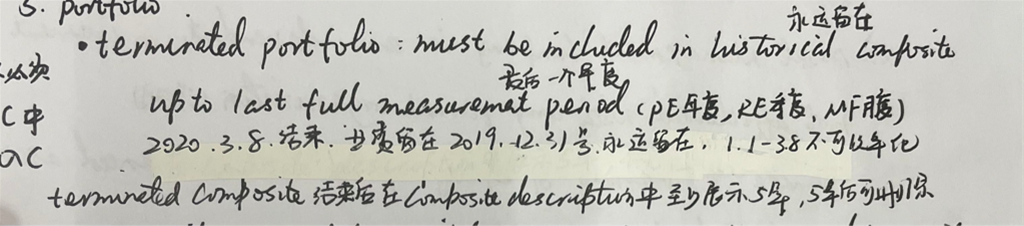 3. portfolio.
永远留在
• terminated portfolio : must be included in historical composite
必须
最后一个年度
up to last full measuremat period (PE年度, RE季度, MF月度)
C中
2020.3.8.结束. 业绩留在2019.12.31号.永远留在. 1.1-3.8不可以年化
terminated composite 结束后在Composite description中至少展示5年, 5年后可删除